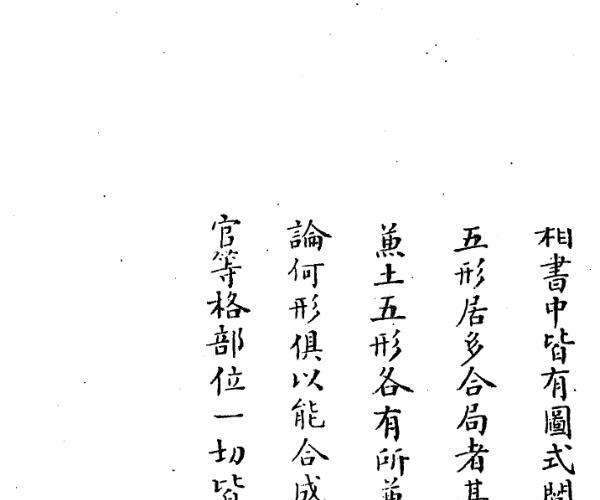 相書中皆有圖式
五形居多合局者
兼土五形各有所兼
論何形俱以能合成
官等格部位一切皆